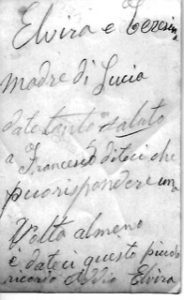 Elvira e Teresina
madre di Lucia
date tanto saluto
a Francesco diteci che
puo rispondere una
Volta almeno
e dateci questo piccolo
ricordo Addio Elvira